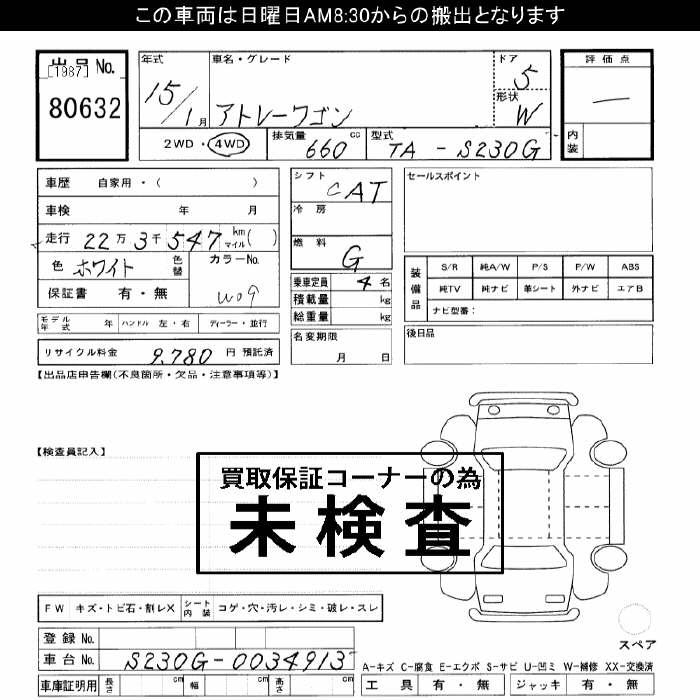 この車両は日曜日AM8:30からの搬出となります
出品No.
[1987]
80632
年式
15/1月
車名・グレード
アトレーワゴン
ドア
5
形状
W
評価点
—
内装
2WD・4WD
排気量
660 cc
型式
TA - S230G
車歴 自家用・( )
車検 年 月
走行 22万3千547 km マイル( )
色 ホワイト
色替
カラーNo.
W09
保証書 有・無
シフト
CAT
冷房
燃料
G
乗車定員 4名
積載量 kg
総重量 kg
セールスポイント
装備品
S/R 純A/W P/S P/W ABS
純TV 純ナビ 革シート 外ナビ エアB
ナビ型番:
モデル年式 年 ハンドル 左・右 ディーラー・並行
リサイクル料金 9,780 円 預託済
名変期限
月 日
後日品
【出品店申告欄(不良箇所・欠品・注意事項等)】
【検査員記入】
買取保証コーナーの為
未検査
FW キズ・トビ石・割レX シート内装 コゲ・穴・汚レ・シミ・破レ・スレ
登録No.
車台No. S230G-0034913
車庫証明用 長さ cm 幅 cm 高さ cm
スペア
A-キズ C-腐食 E-エクボ S-サビ U-凹ミ W-補修 XX-交換済
工具 有・無 ジャッキ 有・無